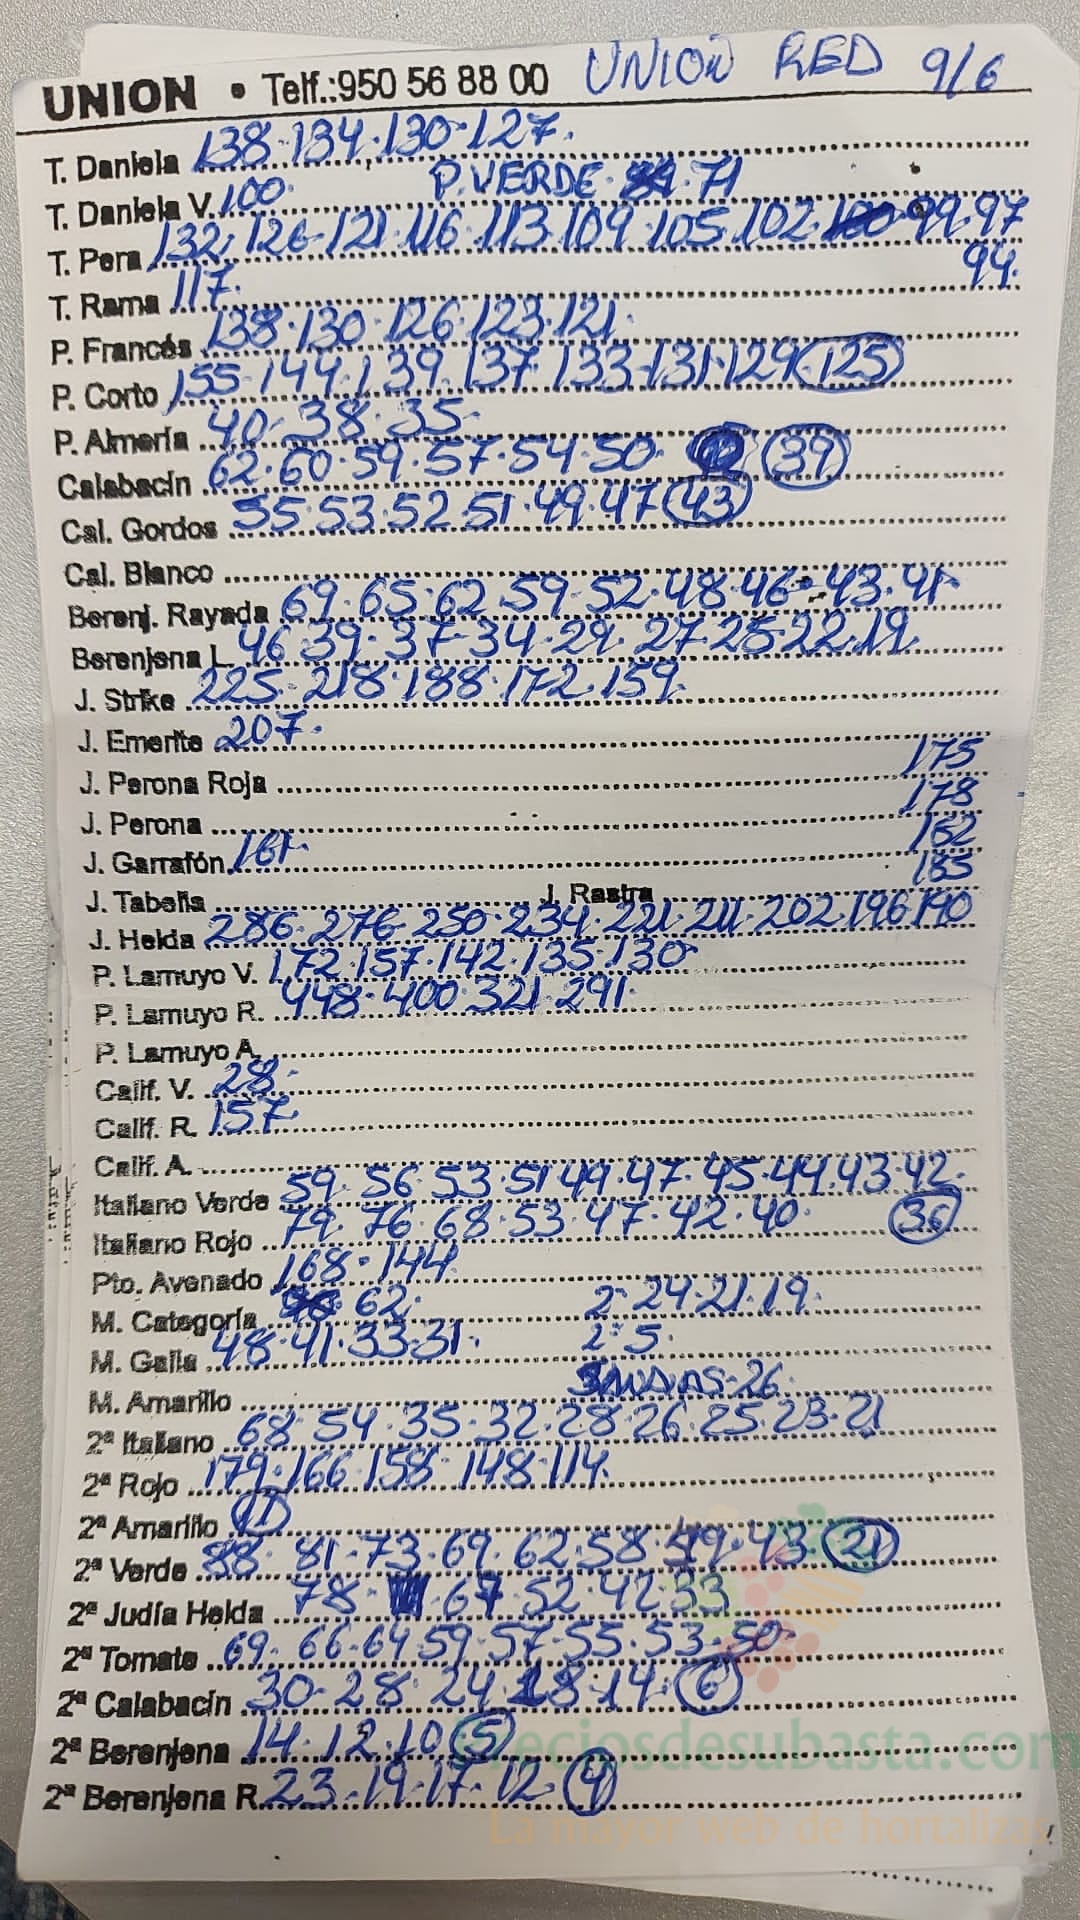 UNION • Telf.:950 56 88 00 UNION RED 9/6
T. Daniela 138·134·130·127·
T. Daniela V. 100· P.VERDE· 71
T. Pera 132·126·121·116·113·109·105·102·99·97
94·
T. Rama 117·
P. Francés 138·130·126·123·121·
P. Corto 155·144·139·137·133·131·129·125
P. Almería 40·38·35·
Calabacín 62·60·59·57·54·50· 39
Cal. Gordos 55·53·52·51·49·47·43
Cal. Blanco
Berenj. Rayada 69·65·62·59·52·48·46·43·41·
Berenjena L. 46·39·37·34·29·27·25·22·19·
J. Strike 225·218·188·172·159·
J. Emerite 207·
J. Perona Roja 175
J. Perona 178
J. Garrafón 161· 162
J. Tabella J. Rastra 185
J. Helda 286·276·250·234·221·211·202·196·190
P. Lamuyo V. 172·157·142·135·130·
P. Lamuyo R. 448·400·321·291·
P. Lamuyo A.
Calif. V. 28·
Calif. R. 157
Calif. A.
Italiano Verde 59·56·53·51·49·47·45·44·43·42·
Italiano Rojo 79·76·68·53·47·42·40· 36
Pto. Avenado 168·144
M. Categoría 62· 2ª 24·21·19·
M. Galia 48·41·33·31· 2ª 5·
M. Amarillo 26·
2ª Italiano 68·54·35·32·28·26·25·23·21
2ª Rojo 179·166·158·148·114·
2ª Amarillo 11
2ª Verde 88·81·73·69·62·58·49·43·21
2ª Judía Helda 78·67·52·42·33
2ª Tomate 69·66·64·59·57·55·53·50·
2ª Calabacín 30·28·24·18·14·6
2ª Berenjena 14·12·10·5
2ª Berenjena R. 23·19·17·12·4
preciosdesubasta.com
La mayor web de hortalizas